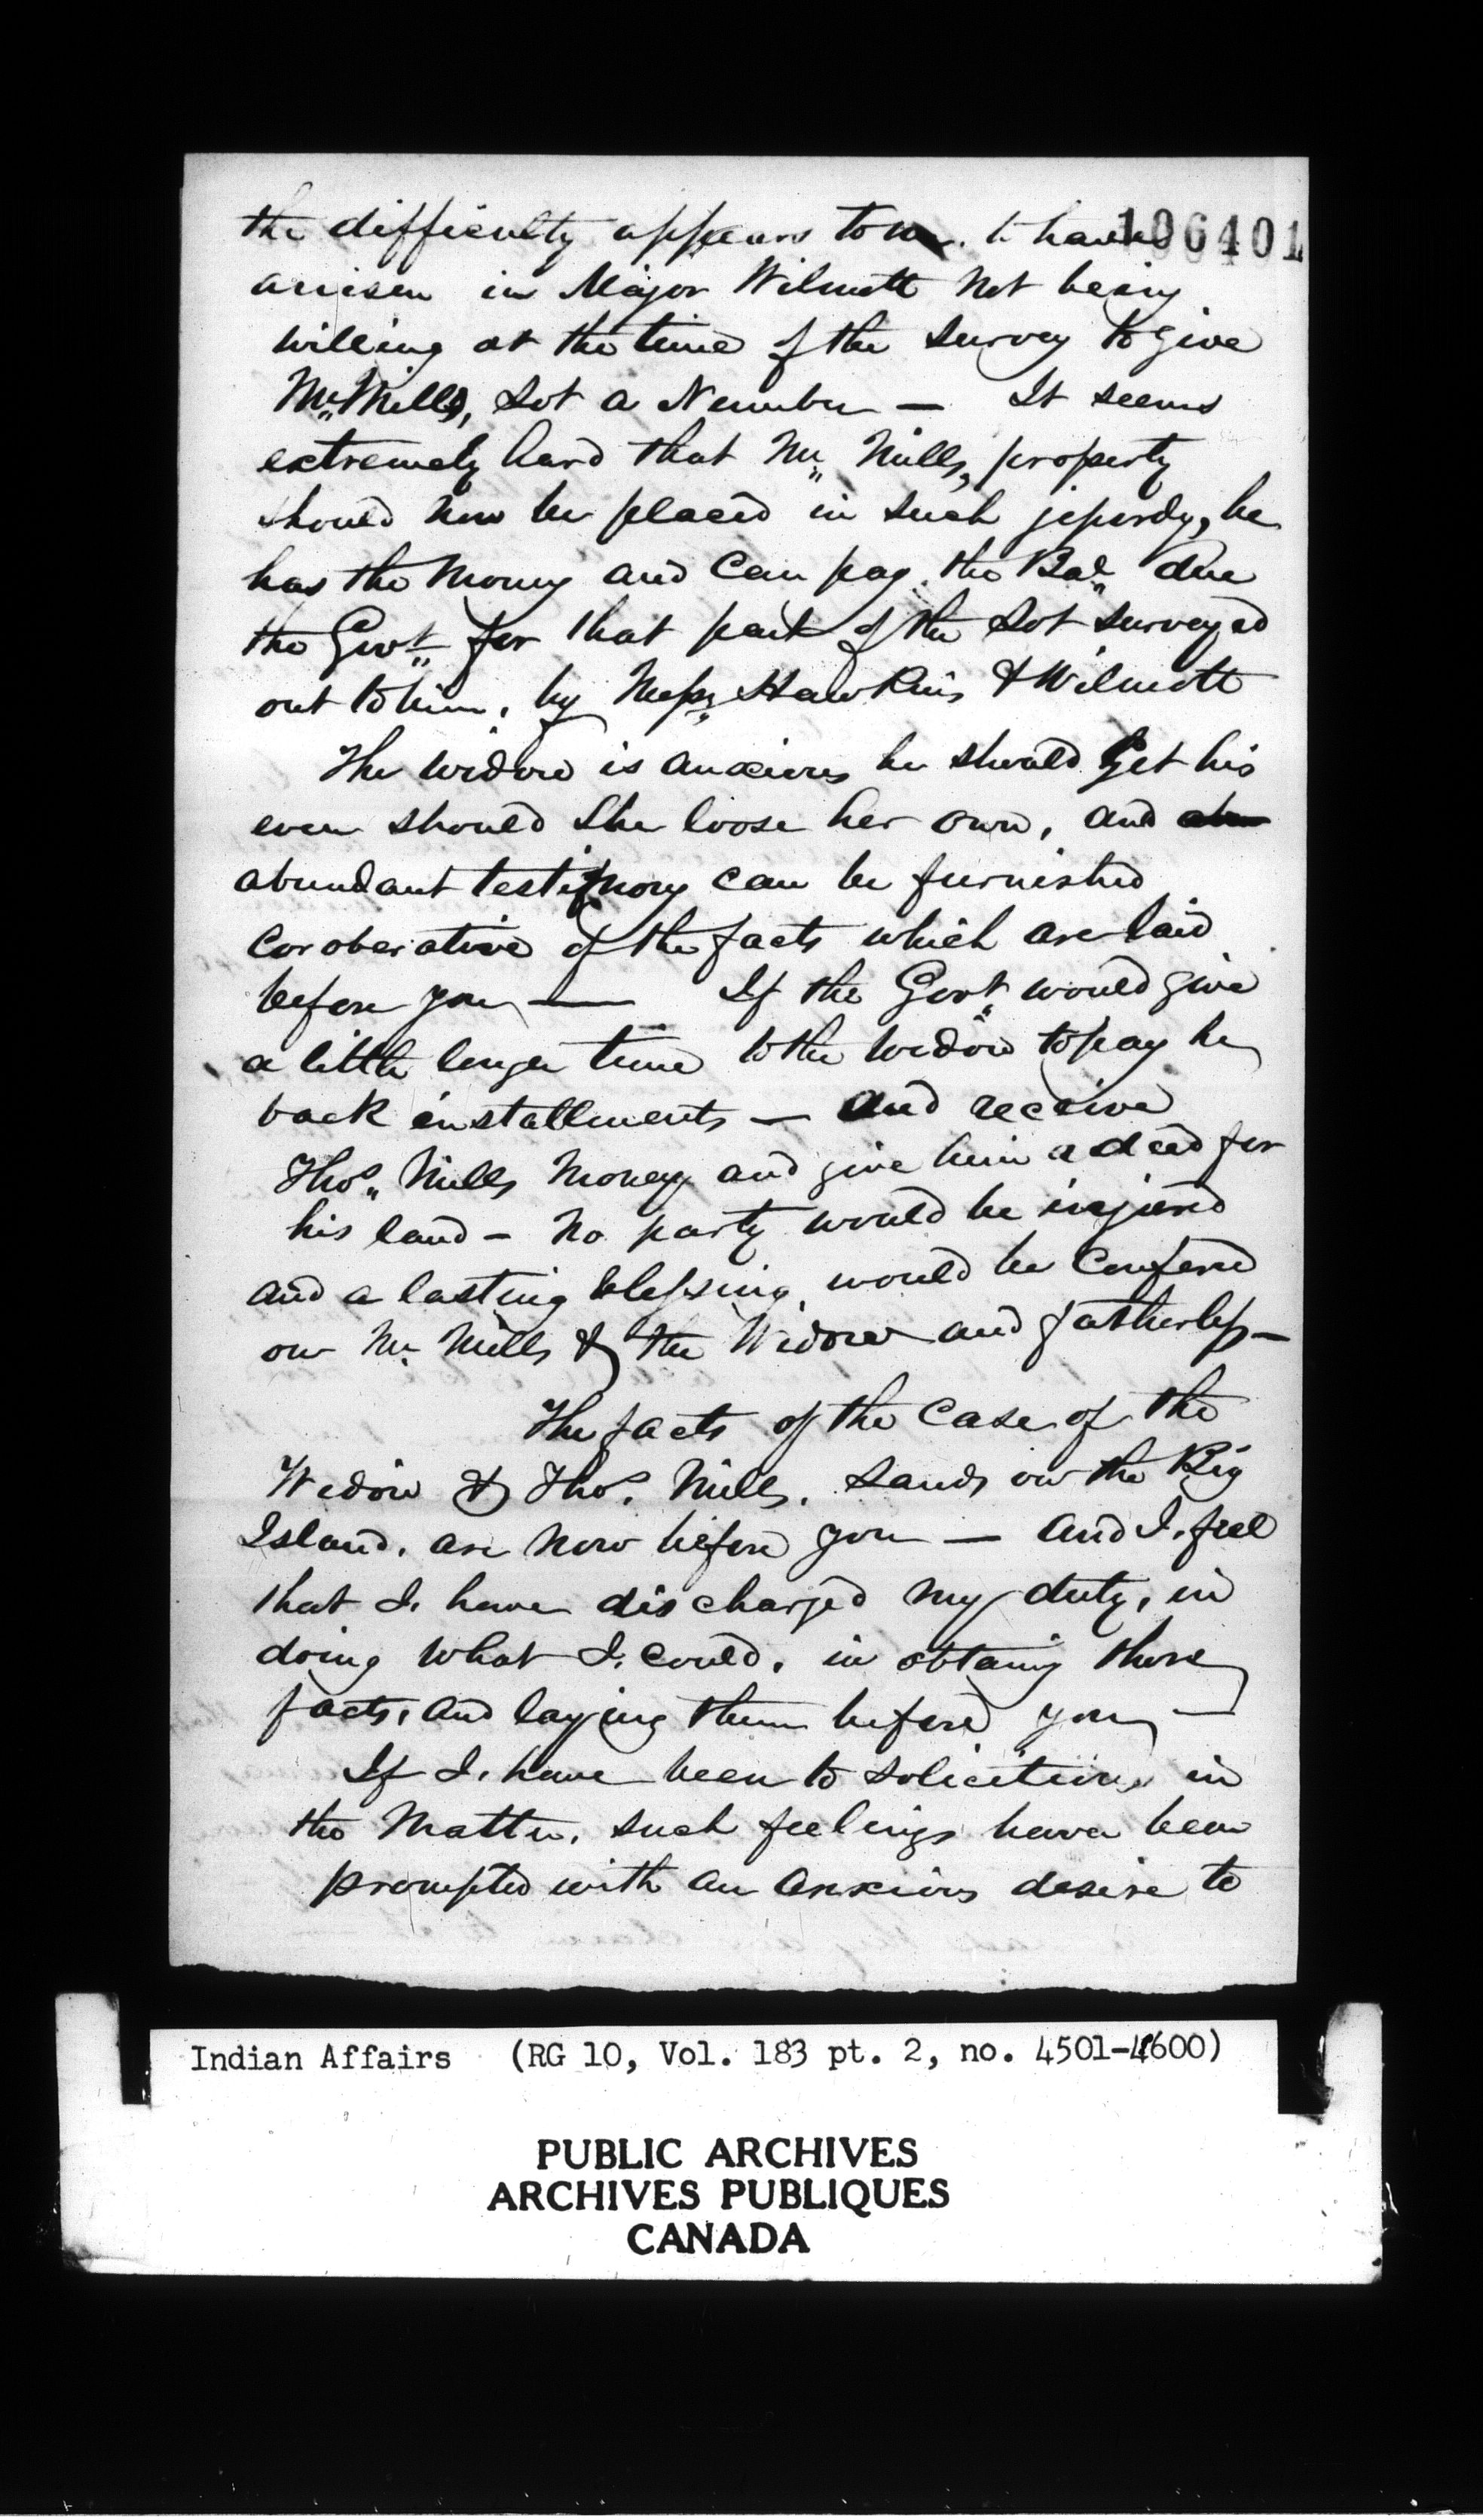 the difficulty appears to me. to have 106401
arrisen in Major Wilmott Not being
willing at the time of the survey to give
Mr. Mills, Lot a Number — It seems
extremely hard that Mr. Mills, property
should now be placed in such jepordy, he
has the Money and Can pay the Bal. due
the Govt. for that part of the Lot surveyed
out to him, by Messrs Hawkins & Wilmott
The Widow is anxious he should Get his
even should She loose her own, and
abundant testimony can be furnished
Coroberative of the facts which are laid
before you — If the Govt. would give
a little longer time to the Widow to pay her
back installments — And receive
Thos. Mills Money and give him a deed for
his land — No party would be injured
and a lasting blessing would be Confered
on Mr. Mills & the Widow and fatherless —
The facts of the Case of the
Widow & Thos. Mills. Lands on the Big
Island. are Now before you — And I. feel
that I. have discharged my duty, in
doing what I. could. in obtaing those
facts, and laying them before you —
If I. have been to solicitious in
the Matter. such feelings have been
prompted with an Anxious desire to
Indian Affairs (RG 10, Vol. 183 pt. 2, no. 4501-4600)
PUBLIC ARCHIVES
ARCHIVES PUBLIQUES
CANADA